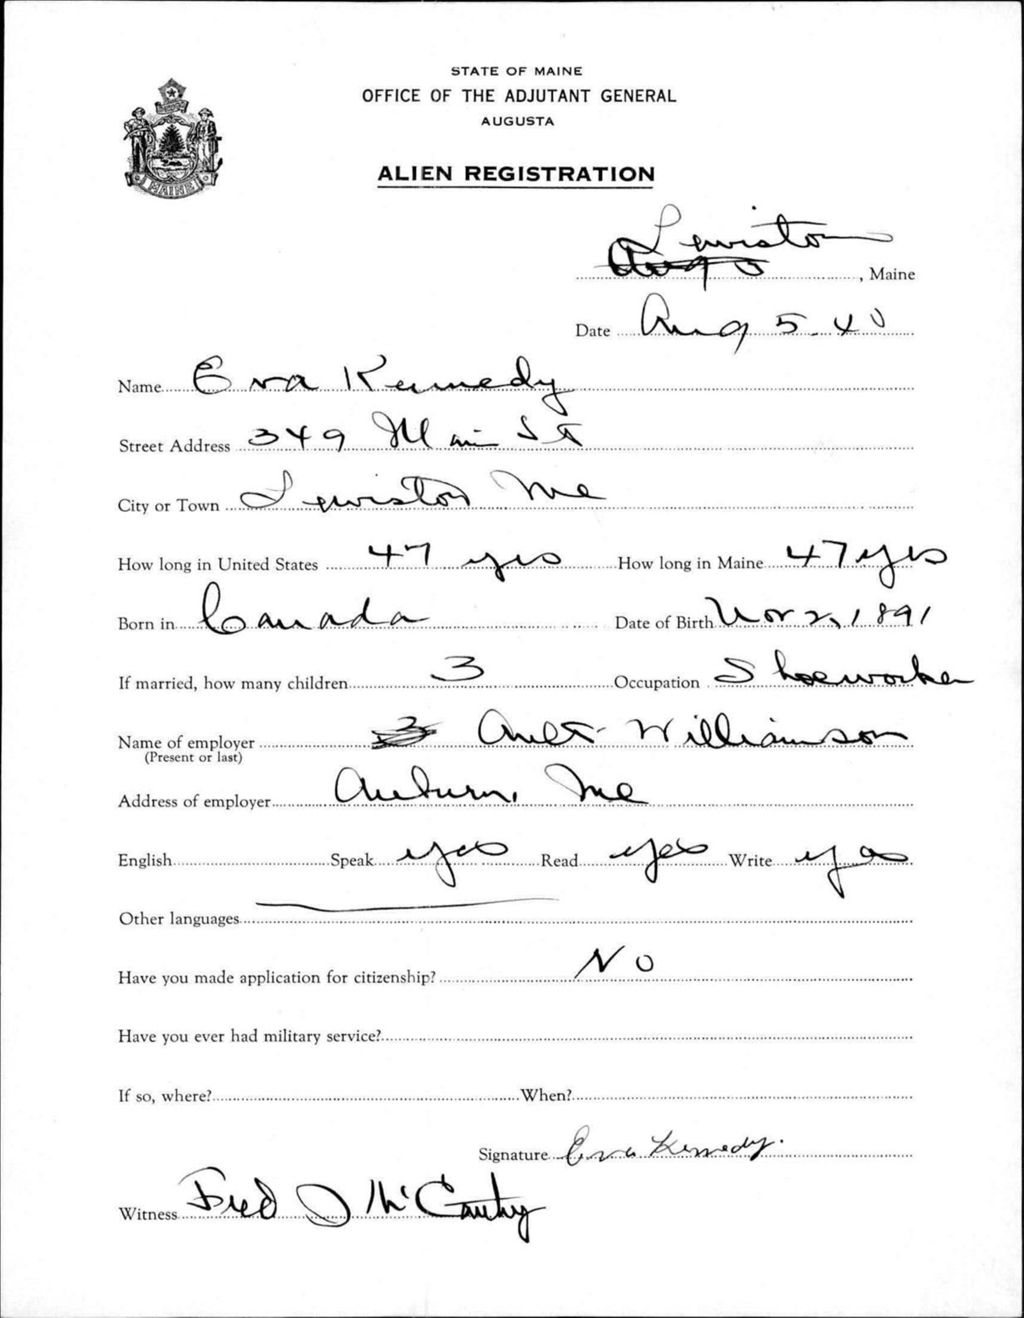 STATE OF MAINE
OFFICE OF THE ADJUTANT GENERAL
AUGUSTA
ALIEN REGISTRATION
MAINE
Lewiston
Aug 5
, Maine
Date Aug 5. 40
Name Eva Kennedy
Street Address 349 Main St
City or Town Lewiston Me
How long in United States 47 yrs How long in Maine 47 yrs
Born in Canada Date of Birth Nov 2, 1891
If married, how many children 3 Occupation Shoeworker
Name of employer 3 Ault Williamson
(Present or last)
Address of employer Auburn, Me
English Speak yes Read yes Write yes
Other languages
Have you made application for citizenship? No
Have you ever had military service?
If so, where? When?
Signature Eva Kennedy.
Witness Fred J McCarthy